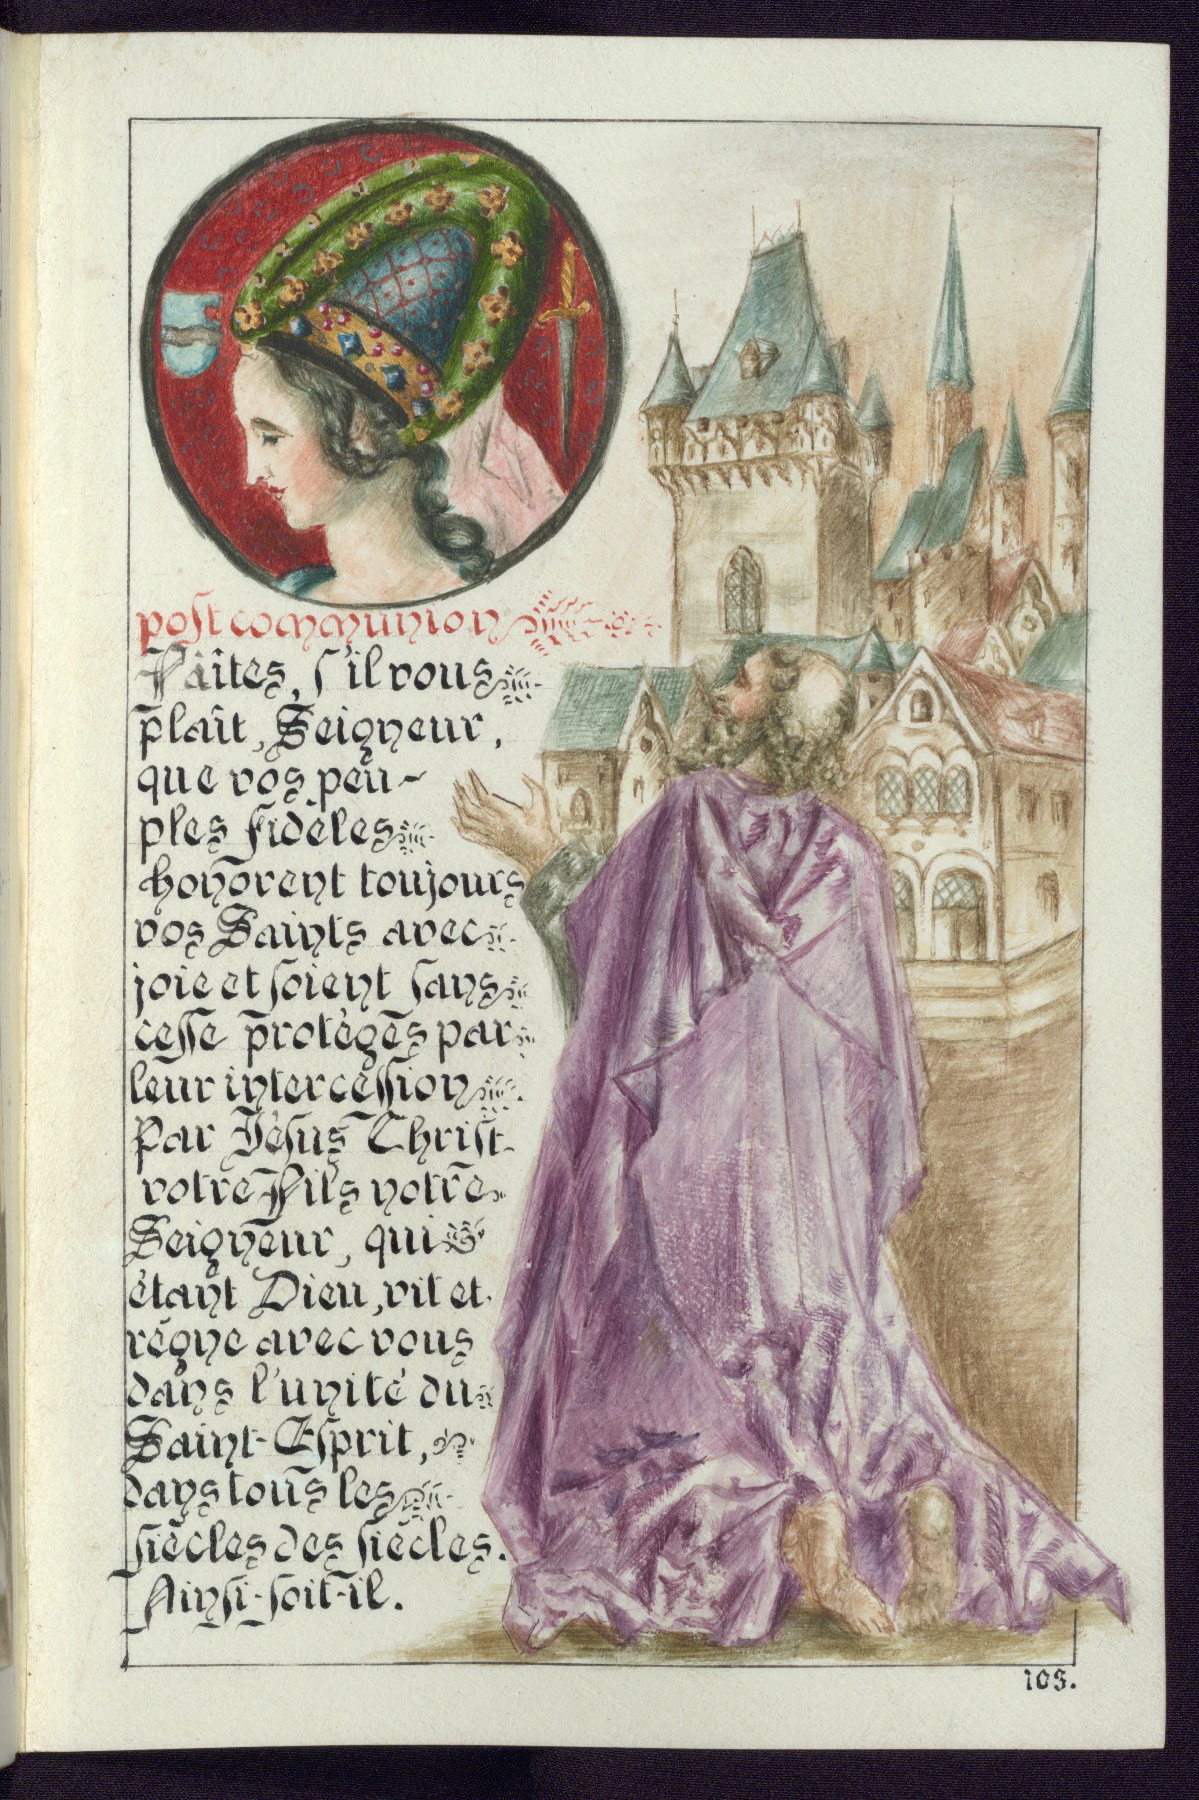 postcommunion
Faîtes, s'il vous
plaît, Seigneur,
que vos peu-
ples fidèles
honorent toujours
vos Saints avec
joie et soient sans
cesse protégés par
leur intercession
Par Jésus Christ
votre Fils notre
Seigneur, qui
étant Dieu, vit et
règne avec vous
dans l'unité du
Saint-Esprit,
dans tous les
siècles des siècles.
Ainsi-soit-il.
103.